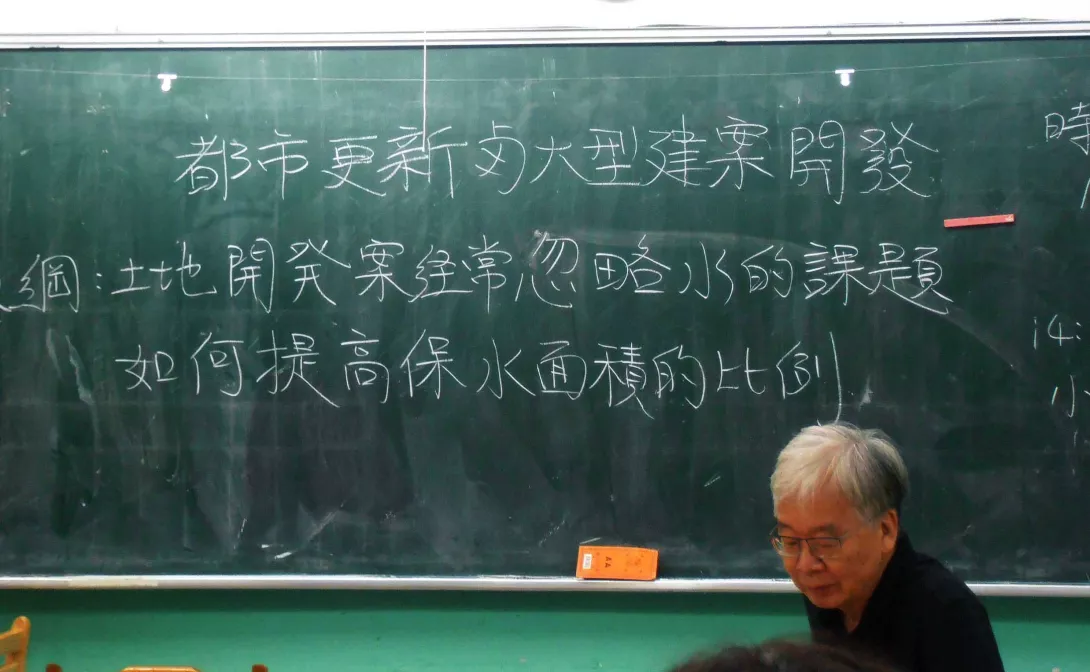 都市更新与大型建案開發
時
綱:土地開発案経常忽略水的課題
如何提高保水面積的比例
14:
小